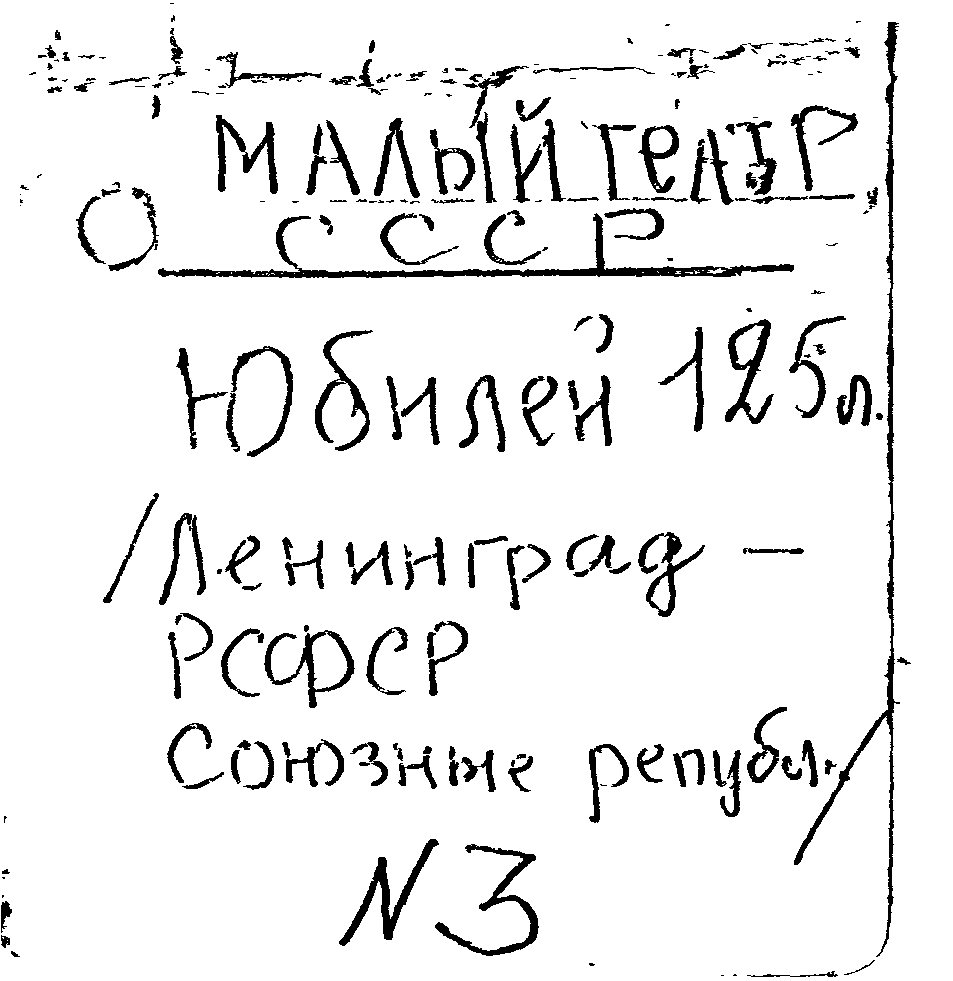 МАЛЫЙ ТЕАТР
СССР
Юбилей 125 л.
/Ленинград —
РСФСР
Союзные републ./
N 3